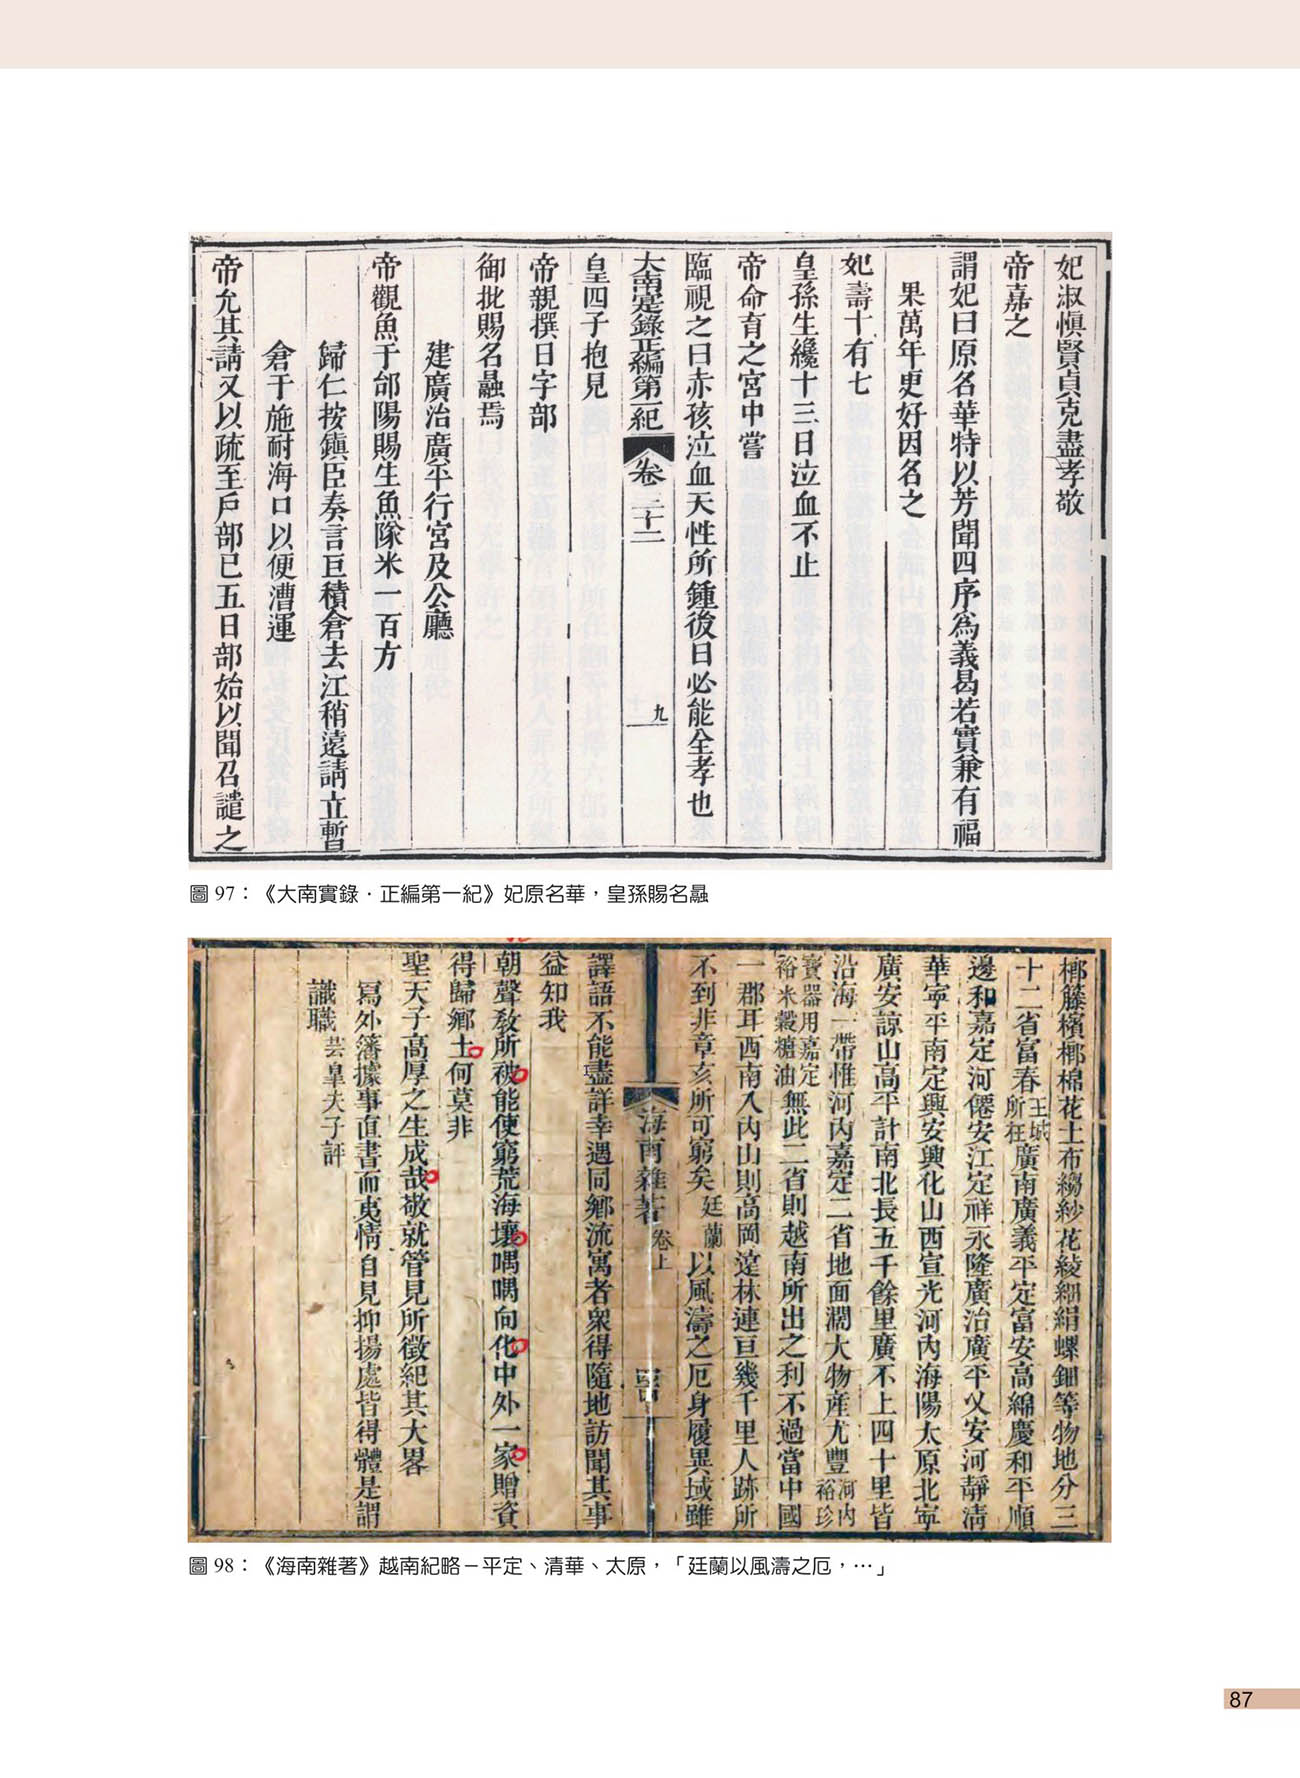 妃淑愼賢貞克盡孝敬
帝嘉之
謂妃曰原名華特以芳聞四序為義曷若實兼有福
果萬年更好因名之
妃壽十有七
皇孫生纔十三日泣血不止
帝命育之宮中嘗
臨視之曰赤孩泣血天性所鍾後日必能全孝也
大南寔錄正編第一紀 卷二十二 九
皇四子抱見
帝親撰日字部
御批賜名㬅焉
建廣治廣平行宮及公廳
帝觀魚于郃陽賜生魚隊米一百方
歸仁按鎮臣奏言巨積倉去江稍遠請立暫
倉于施耐海口以便漕運
帝允其請又以疏至戶部已五日部始以聞召譴之
圖 97：《大南實錄．正編第一紀》妃原名華，皇孫賜名㬅
榔籐檳榔棉花土布縐紗花綾細絹螺鈿等物地分三
十二省富春王城所在廣南廣義平定富安高綿慶和平順
邊和嘉定河僊安江定祥永隆廣治廣平乂安河靜清
華寧平南定興安興化山西宣光河內海陽太原北寧
廣安諒山高平計南北長五千餘里廣不上四十里皆
沿海一帶惟河內嘉定二省地面濶大物產尤豐河內裕珍
寶器用嘉定裕米穀糖油無此二省則越南所出之利不過當中國
一郡耳西南入內山則高岡邃林連亘幾千里人跡所
不到非章亥所可窮矣廷蘭以風濤之厄身履異域雖
海南雜著 卷上
譯語不能盡詳幸遇同鄉流寓者衆得隨地訪聞其事
益知我
朝聲敎所被能使窮荒海壤喁喁向化中外一家贈資
得歸鄉土何莫非
聖天子高厚之生成哉敬就管見所徵紀其大畧
寫外藩據事直書而夷情自見抑揚處皆得體是謂
識職 芸皐夫子評
圖 98：《海南雜著》越南紀略－平定、清華、太原，「廷蘭以風濤之厄，⋯」
87